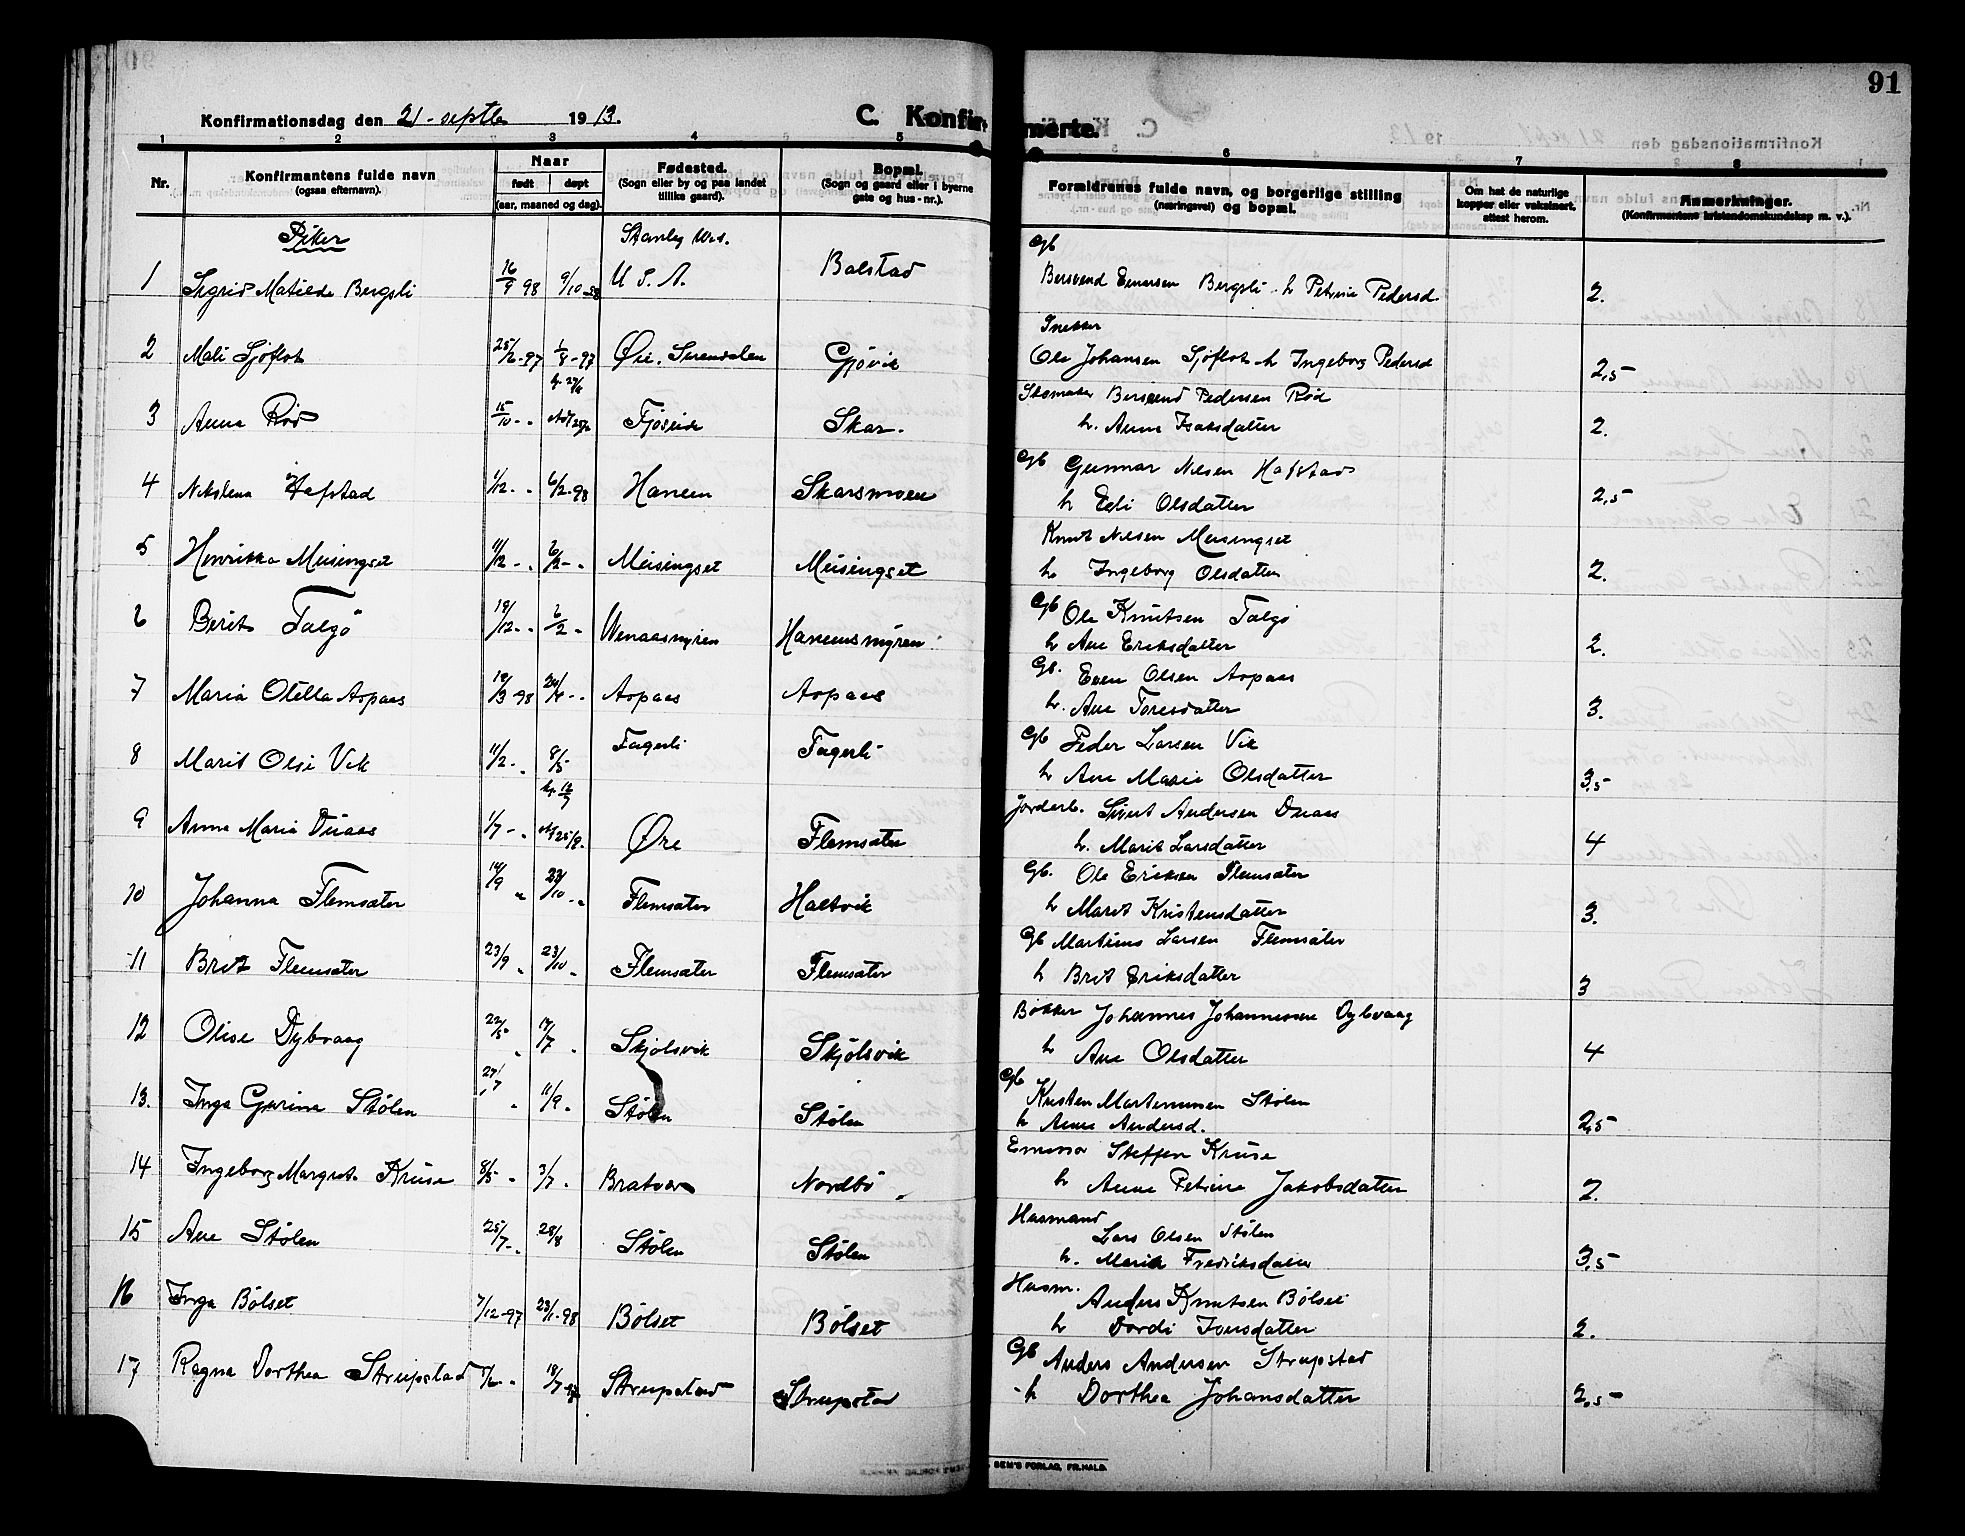 91
Konfirmationsdag den 21 septbr 1913.
C. Konfirmerte.
1 2 3 4 5 6 7 8
Nr.
Konfirmantens fulde navn
(ogsaa efternavn).
Naar
født døpt
(aar, maaned og dag).
Fødested.
(Sogn eller by og paa landet
tillike gaard).
Bopæl.
(Sogn og gaard eller i byerne
gate og hus-nr.).
Forældrenes fulde navn, og borgerlige stilling
(næringsvei) og bopæl.
Om hat de naturlige
kopper eller vaksinert,
attest herom.
Anmerkninger.
(Konfirmantens kristendomskundskap m. v.).
Piker
Stanley Wis. Gb
1 Sigrid Matilde Bergsli 16/9 98 9/10 98 U. S. A. Balstad Bersvend Einarsen Bergsli h Petrine Pedersd. 2.
Snekker
2 Mali Sjøflot 25/2-97 1/8-97 Øre. Surendalen Gjøvik Ole Johansen Sjøflot h Ingeborg Pedersd 2,5
3 Anna Rød 15/10 - " Fjøseide Skar. Skomaker Bersvend Pedersen Rød
h. Anne Isaksdatter 2.
4 Nikolena Hafstad 1/12 - " 6/2-98 Hanem Skarsmoen Gb Gunnar Nilsen Hafstad
h Eli Olsdatter 2,5
5 Henrikka Meisingset 11/12 - " 6/2 - " Meisingset Meisingset Knut Nilsen Meisingset
h Ingeborg Olsdatter 2.
6 Berit Talgø 18/12 - " 6/2 - Wenaasmyren Hanemsmyren Gb Ole Knutsen Talgø
h Ane Eriksdatter 2.
7 Maria Otella Aspaas 19/3 98 24/4 - - Aspaas Aspaas Gb. Even Olsen Aspaas
h. Ane Toresdatter 3.
8 Marit Olise Vik 11/2 - " 8/5 Fagerli Fagerli Gb Peder Larsen Vik
h Ane Marie Olsdatter 3,5
9 Anne Maria Duaas 1/7 - " 25/9. Øre Flemsæter Jorderb. Sivert Andersen Duaas
h. Marit Larsdatter 4
10 Johanna Flemsæter 14/9 " 23/10 - " Flemsæter Haltvik Gb. Ole Eriksen Flemsæter
h Marit Kristensdatter 3.
11 Brit Flemsæter 23/9 " 23/10 " Flemsæter Flemsæter Gb Martinus Larsen Flemsæter
h Brit Eriksdatter 3
12 Olise Dybvaag 22/5 " 17/7 " Skjølsvik Skjølsvik Bøkker Johannes Johannessen Dybvaag
h Ane Olsdatter 4
13. Inga Gurine Stølen 27/7 " 11/9 " Stølen Stølen Gb Kristen Martinussen Stølen
h Anne Andersd. 2,5
14 Ingeborg Margret. Kruse 8/5 " 3/7 " Bratvær Nordbø Emissær Steffen Kruse
h Anne Petrine Jakobsdatter 2.
15 Ane Stølen 25/7 - " 28/8 Stølen Stølen Husmand
Lars Olsen Stølen
h. Marie Fredriksdatter 3,5
16 Inga Bølset 7/12-97 23/1-98 Bølset Bølset Husm. Anders Knutsen Bølset
h Dordi Iversdatter 2.
17 Ragna Dorthea Strupstad Strupstad Strupstad Gb Anders Andersen Strupstad
h Dorthea Johansdatter 2,5
SEM'S FORLAG, FR.HALD.